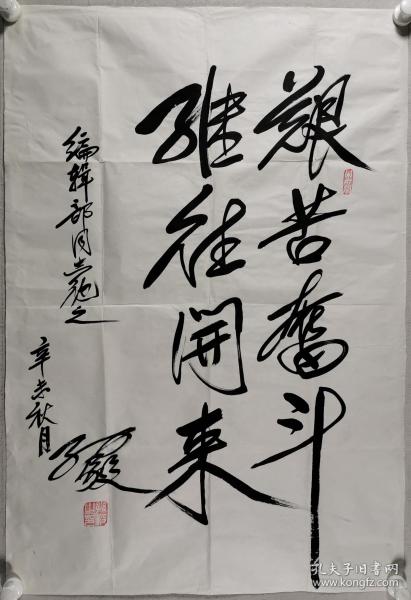 艱苦奮斗
继往開来
编辑部同志勉之
辛未秋月
孔夫子旧书网
www.kongfz.com